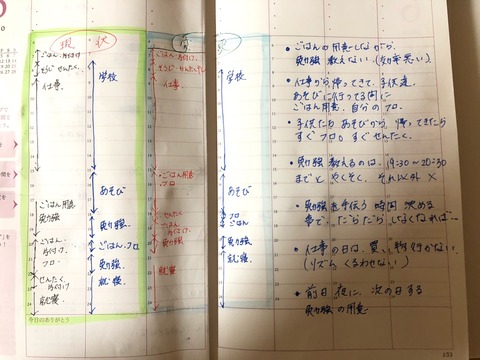 現 状
ごはん、片付け
そうじ せんたく
仕事
ごはん用意
勉強
ごはん、
片付け、
フロ、
せんたく、
片付け
就寝
学校
あそび
勉強
ごはん、フロ
勉強
就寝
ごはん、片付け
そうじ、せんたく
仕事
・ごはん用意
・フロ
せんたく
ごはん
片付け
勉強
就寝
学校
あそび
フロ
ごはん
勉強
就寝
• ごはんの用意しながら、
勉強教えない（効率悪い）
• 仕事から帰ってきて、子供達
あそびに行ってる間に
ごはん用意、自分のフロ。
• 子供たち あそびから、帰ってきたら
すぐフロ。すぐせんたく。
• 勉強 教えるのは、19:30～20:30
までと やくそく。それ以外 ×
• 勉強を手伝う時間 決める
事で、だらだらしなくなれば…
• 仕事の日は、買い物行かない。
（リズム くるわせない）
• 前日夜に、次の日する
勉強の用意
今日のありがとう
153